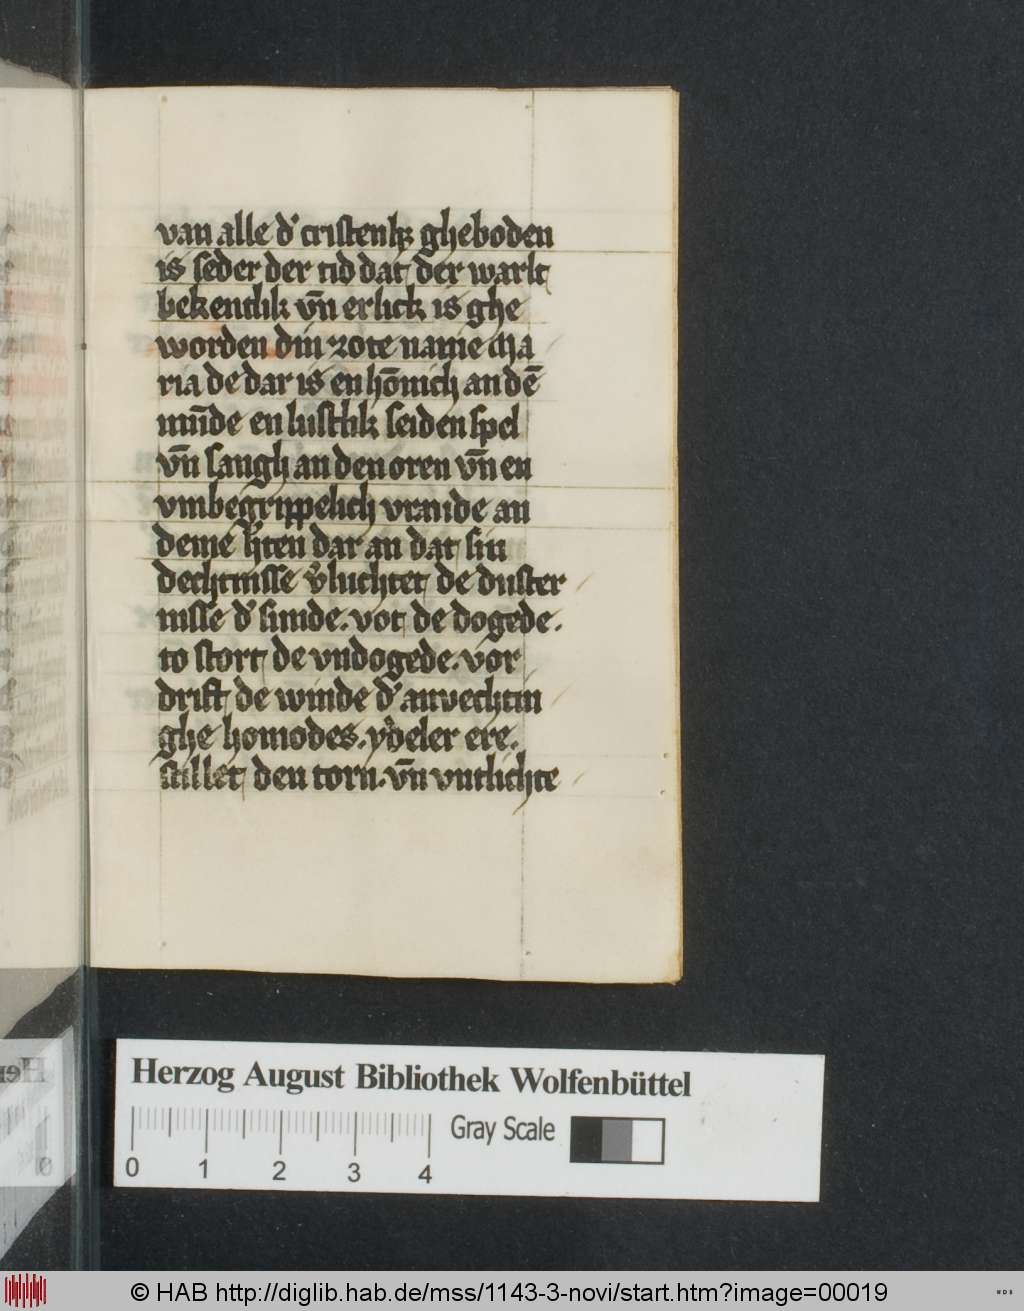 van alle d' cristenh' gheboden
is seder der tid dat der warlt
bekentlik vn̄ erlick is ghe
worden din zote name Ma
ria de dar is en hōnich an dē
mūde en lustlik seiden spel
vn̄ sangh an den oren vn̄ en
vmbegrippelich vraude an
deme h'ten dar an dat sin
dechtnisse v'luchtet de duster
nisse d' sunde. vot de dogede.
to stort de vndogede. vor
drift de winde d' anvechtin
ghe homodes. ydeler ere.
stillet den torn. vn̄ vntlichte
Herzog August Bibliothek Wolfenbüttel
Gray Scale
0 1 2 3 4
© HAB http://diglib.hab.de/mss/1143-3-novi/start.htm?image=00019